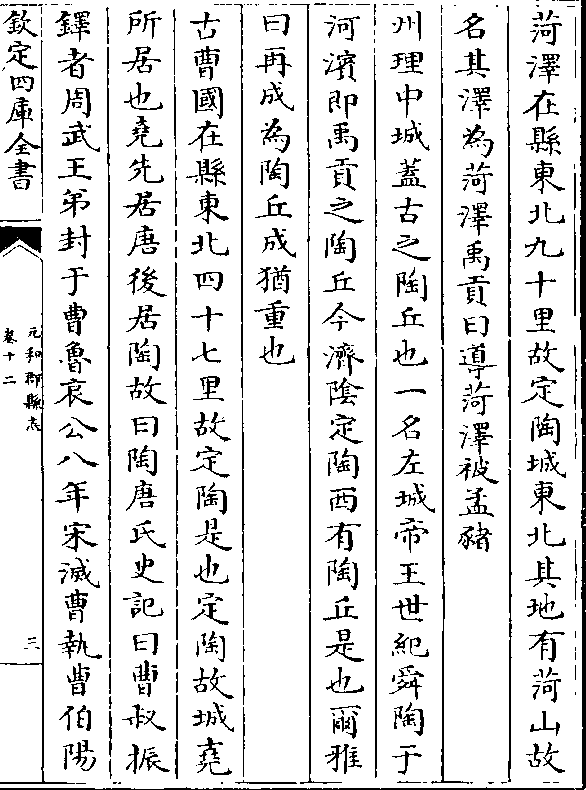 菏澤在縣東北九十里故定陶城東北其地有菏山故
名其澤為菏澤禹貢曰導菏澤被孟豬
州理中城蓋古之陶丘也一名左城帝王世紀舜陶于
河濱即禹貢之陶丘今濟陰定陶西有陶丘是也爾雅
曰再成為陶丘成猶重也
古曹國在縣東北四十七里故定陶是也定陶故城堯
所居也堯先居唐後居陶故曰陶唐氏史記曰曹叔振
鐸者周武王弟封于曹魯哀公八年宋滅曹執曹伯陽
欽定四庫全書
元和郡縣志
卷十二
三